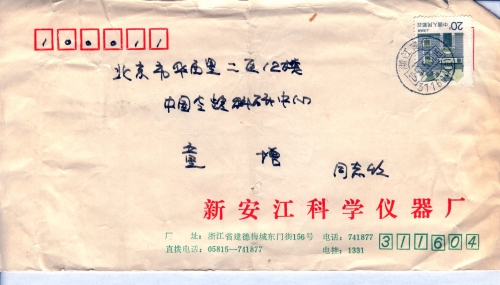 100011
北京市华严里二区12楼
中国空间科研中心
童增
同志收
新安江科学仪器厂
厂 址：浙江省建德梅城东门街156号 电话：741877
直拨电话：05815—741877 电挂：1331
311604
20
中国人民邮政